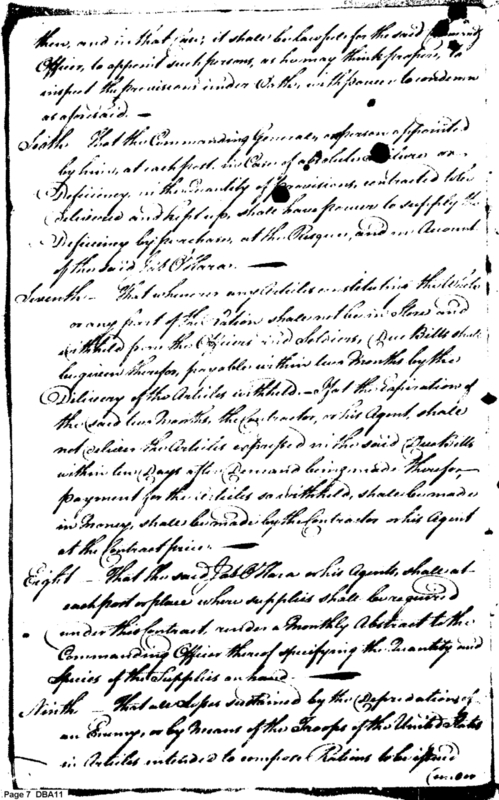 them, and in that case; it shall be lawful for the said Commanding
Officer, to appoint such persons, as he may think proper, to
inspect the provisions under Oath, with power to condemn
as aforesaid. —
Sixth That the Commanding General, or person appointed
by him, at each post, in Case of absolute failure or
Deficiency, in the quantity of Provisions, contracted to be
delivered and kept up, shall have power to supply the
Deficiency by purchase, at the Risque, and on Account
of the said Jas O'Hara. —
Seventh — That whenever any Articles constituting the Whole
or any part of the ration shall not be in Store and
withheld from the Officers and Soldiers, Due Bills shall
be given therefor, payable within two Months by the
Delivery of the Articles withheld. — If at the Expiration of
the said two Months, the Contractor, or his Agent, shall
not deliver the Articles expressed in the said Due Bills
within ten Days after Demand being made therefor,
payment for the articles so withheld, shall be made
in Money, shall be made by the Contractor or his Agent
at the Contract price. —
Eight — That the said Jas O'Hara or his Agents, shall at
each post or place where supplies shall be required
under this Contract, render a Monthly Abstract to the
Commanding Officer thereof specifying the Quantity and
Species of the Supplies on hand. —
Ninth — That all losses sustained by the Depredations of
an Enemy, or by Means of the Troops of the United States
in Articles intended to compose Rations to be issued
under
Page 7 DBA11